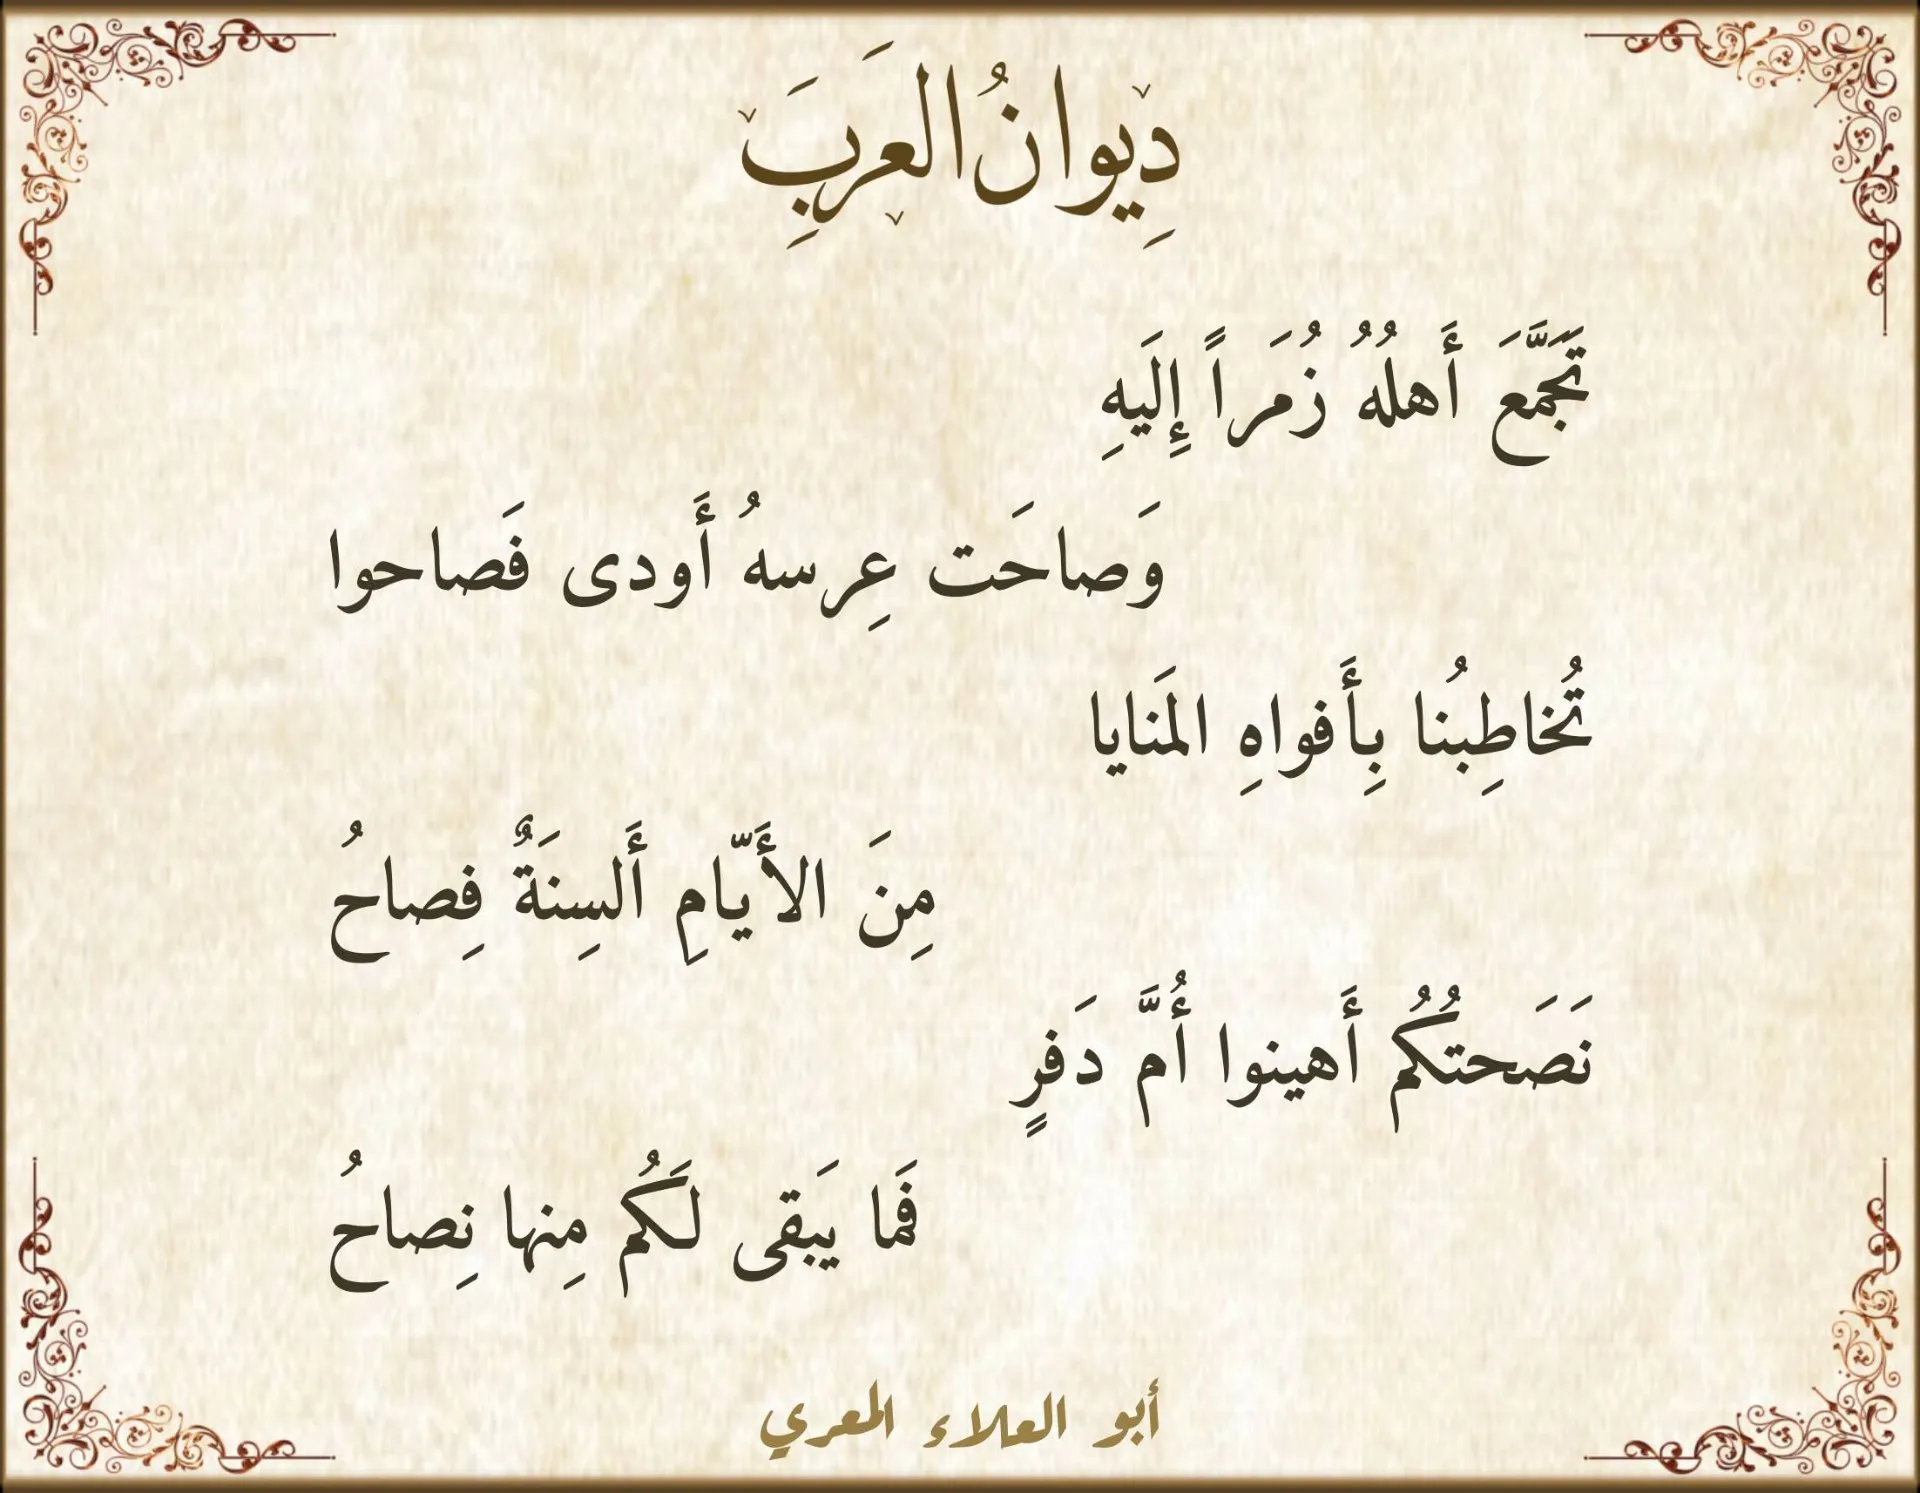 دِيوانُ العَربَِ
تَجَمَّعَ أَهلُهُ زُمَراً إِلَيهِ
وَصاحَت عِرسهُ أَودى فَصاحوا
تُخاطِبُنا بِأَفواهِ المَنايا
مِنَ الأَيّامِ أَلسِنَةٌ فِصاحُ
نَصَحتُكُم أَهينوا أُمَّ دَفرٍ
فَما يَبقى لَكُم مِنها نِصاحُ
أبو العلاء المعري